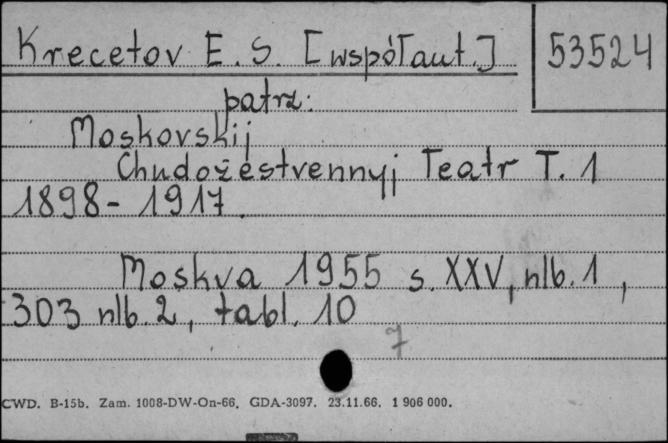 Krecetov E. S. [współaut.] 53524
patrz:
Moskovskij
Chudožestvennyj Teatr T. 1
1898 - 1917.
Moskva 1955 s. XXV, nlb. 1,
303 nlb. 2, tabl. 10
7
CWD. B-15b. Zam. 1008-DW-On-66. GDA-3097. 23.11.66. 1 906 000.